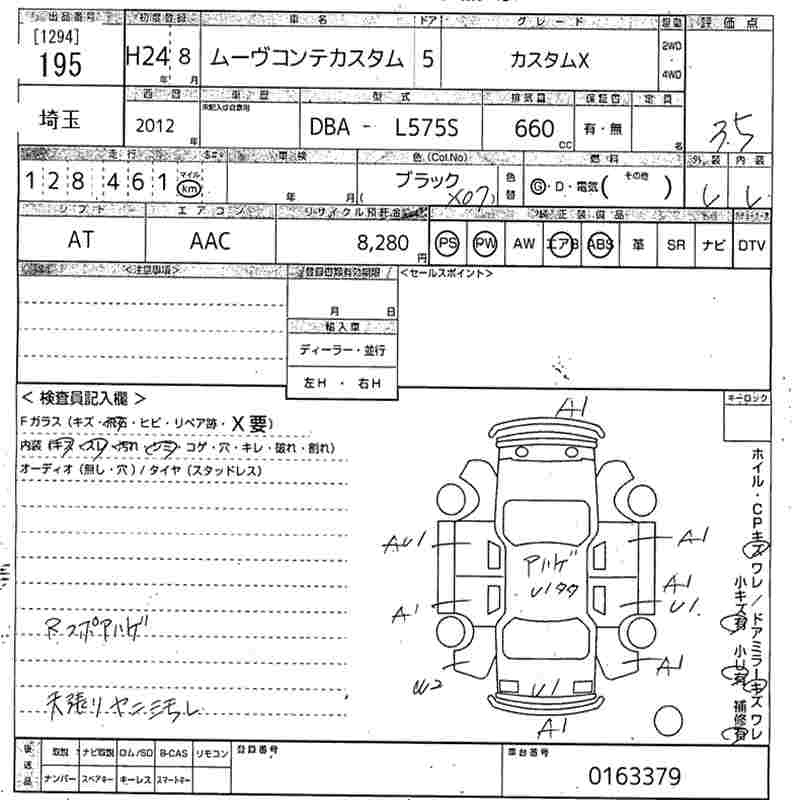 出品番号 初度登録 車名 ドア グレード 駆動 評価点
[1294]
195 H24 8 ムーヴコンテカスタム 5 カスタムX 2WD・4WD
年 月
西暦 車歴 型式 排気量 保証書 定員
未記入は自家用
埼玉 2012 年 DBA - L575S 660 CC 有・無 名 3.5
走行 車検 色(Col.No) 燃料 外装 内装
128461 マイル km 年 月 ブラック (X07) 色替 G・D・電気( その他 ) レ レ
シフト エアコン リサイクル預託金 純正装備品
AT AAC 8,280 円 PS PW AW エアB ABS 革 SR ナビ DTV
<注意事項> 登録書類有効期限 <セールスポイント>
月 日
輸入車
ディーラー・並行
左H ・ 右H
< 検査員記入欄 > キーロック
Fガラス (キズ・飛石・ヒビ・リペア跡・X要)
内装 (キズ・スレ・汚れ・シミ・コゲ・穴・キレ・破れ・割れ)
オーディオ (無し・穴) / タイヤ (スタッドレス)
A1
AU1 A1
アハゲ
U1タタ
A1 A1
U1
Rスポアハゲ
W2 A1
U1
A1
天張リヤニ汚レ
ホイル・CPキズワレ/ドアミラーキズワレ
小キズ有 小U有 補修有
後送品 取説 ナビ取説 ロム/SD B-CAS リモコン 登録番号 車台番号
ナンバー スペアキー キーレス スマートキー 0163379